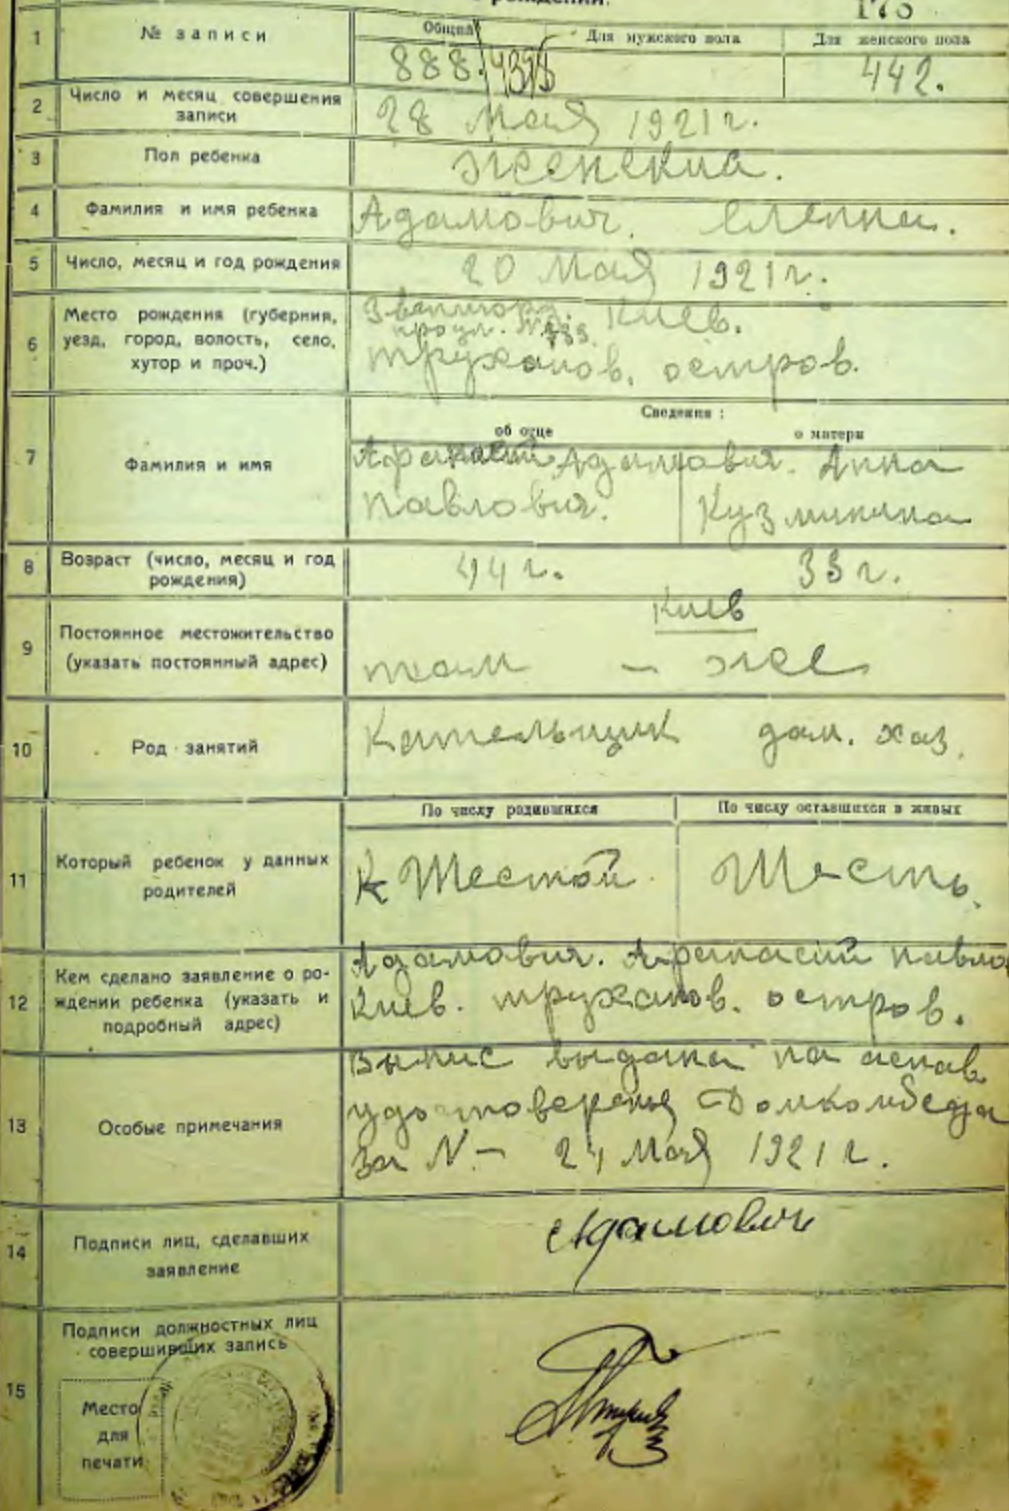 рождении.
1 № записи Общий Для мужского пола Для женского пола
888. 442.
2 Число и месяц совершения записи 28 Мая 1921 г.
3 Пол ребенка женскиа.
4 Фамилия и имя ребенка Адамович. Еленна.
5 Число, месяц и год рождения 20 Мая 1921 г.
6 Место рождения (губерния, уезд, город, волость, село, хутор и проч.)
Киев.
труханов. остров.
Сведения:
об отце о матери
7 Фамилия и имя
Афанасий Адамович. Анна
Павлович. Кузминина
8 Возраст (число, месяц и год рождения) 44 г. 33 г.
9 Постоянное местожительство (указать постоянный адрес)
Киев
там - же
10 Род занятий Кательщик дом. хаз.
По числу родившихся По числу оставшихся в живых
11 Который ребенок у данных родителей
Шестой Шесть.
12 Кем сделано заявление о рождении ребенка (указать и подробный адрес)
Адамович. Афанасий Павло
Киев. труханов. остров.
13 Особые примечания
выдана на аснав
удостоверенья Домкомбеда
За N.- 24 Мая 1921 г.
14 Подписи лиц, сделавших заявление
Адамович
15 Подписи должностных лиц совершивших запись
Место
для
печати